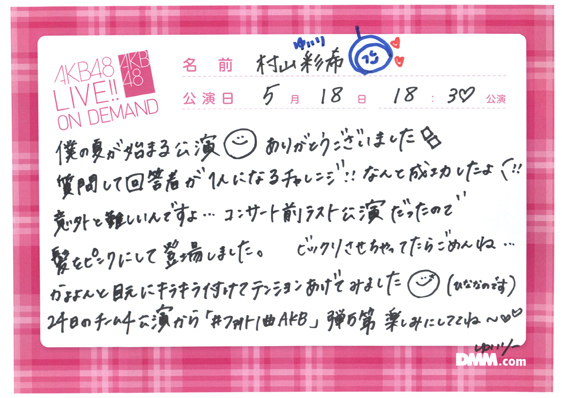 AKB48
LIVE!!
ON DEMAND
AKB
48
ゆいり
名前 村山彩希
公演日 5月18日 18:30公演
僕の夏が始まる公演 ありがとうございました
質問して回答者が1人になるチャレンジ!! なんと成功したよ(!!
意外と難しいんですよ… コンサート前ラスト公演だったので
髪をピンクにして登場しました。 ビックリさせちゃってたらごめんね…
かよよんと目元にキラキラ付けてテンションあげてみました (ひななのです)
24日のチーム4公演から「#フォト1曲AKB」弾5第 楽しみにしててね〜
ゆいりー
DMM.com